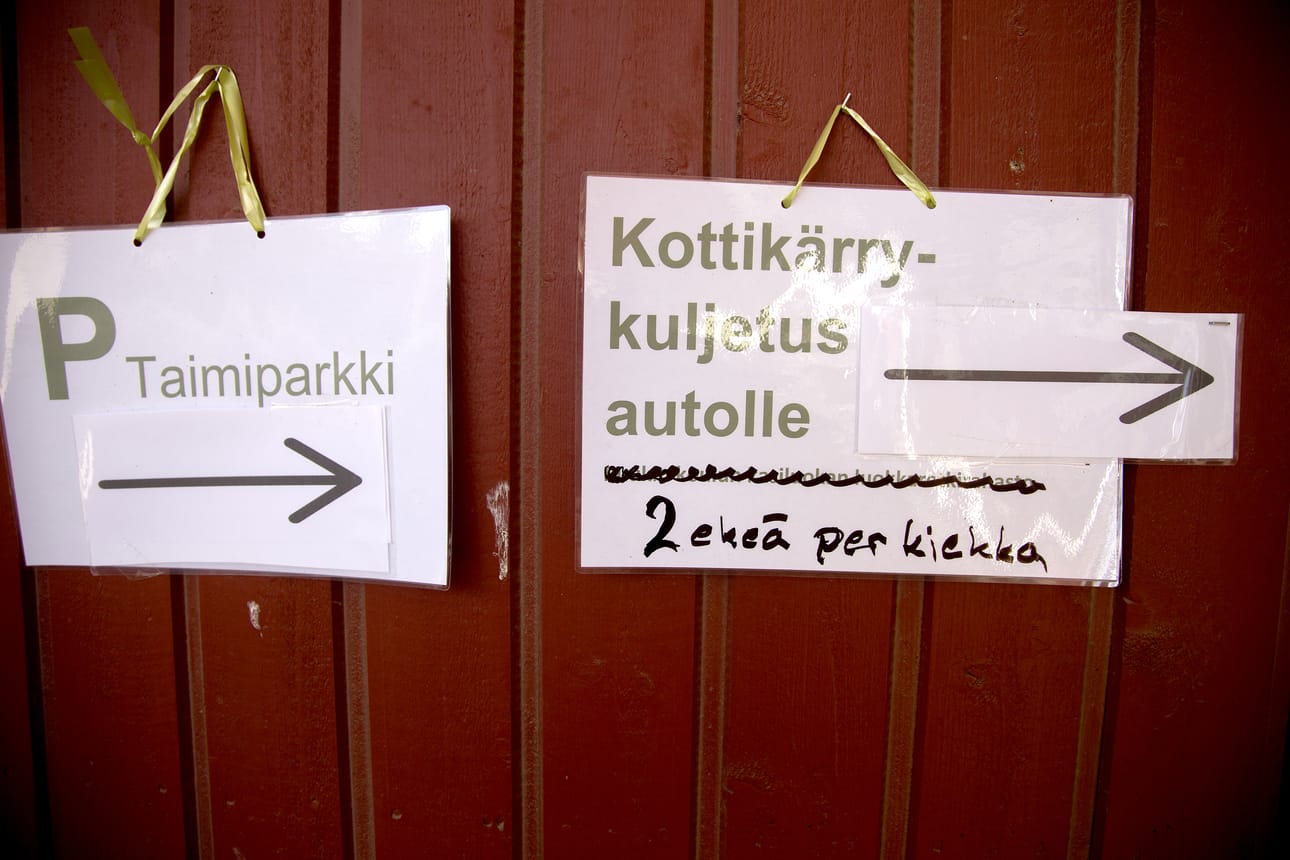 P Taimiparkki
Kottikärry-
kuljetus
autolle
2 ekeä per kiekka